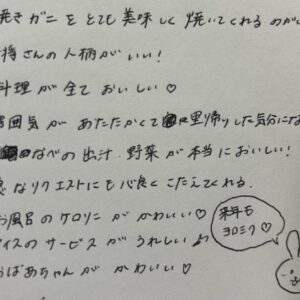 焼きガニをとても美味しく焼いてくれるのが
将さんの人柄がいい!
料理が全ておいしい♡
囲気があたたかくて里帰りした気分にな
なべの出汁、野菜が本当においしい!
なリクエストにも心良くこたえてくれる.
お風呂のケロリンがかわいい♡
イスのサービスがうれしい♪
おばあちゃんがかわいい♡
来年も
ヨロミク♡